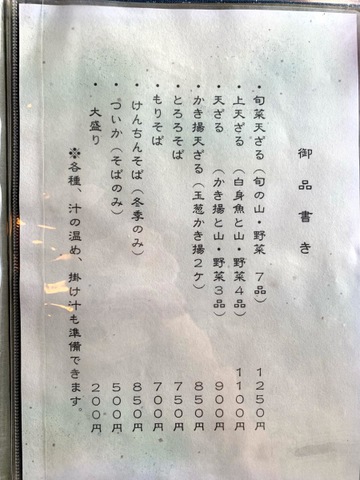 御品書き
・旬菜天ざる(旬の山・野菜 7品) 1250円
・上天ざる (白身魚と山・野菜4品) 1100円
・天ざる (かき揚と山・野菜3品) 900円
・かき揚天ざる(玉葱かき揚2ケ) 850円
・とろろそば 750円
・もりそば 700円
・けんちんそば(冬季のみ) 850円
・ついか(そばのみ) 500円
・大盛り 200円
※各種、汁の温め、掛け汁も準備できます。